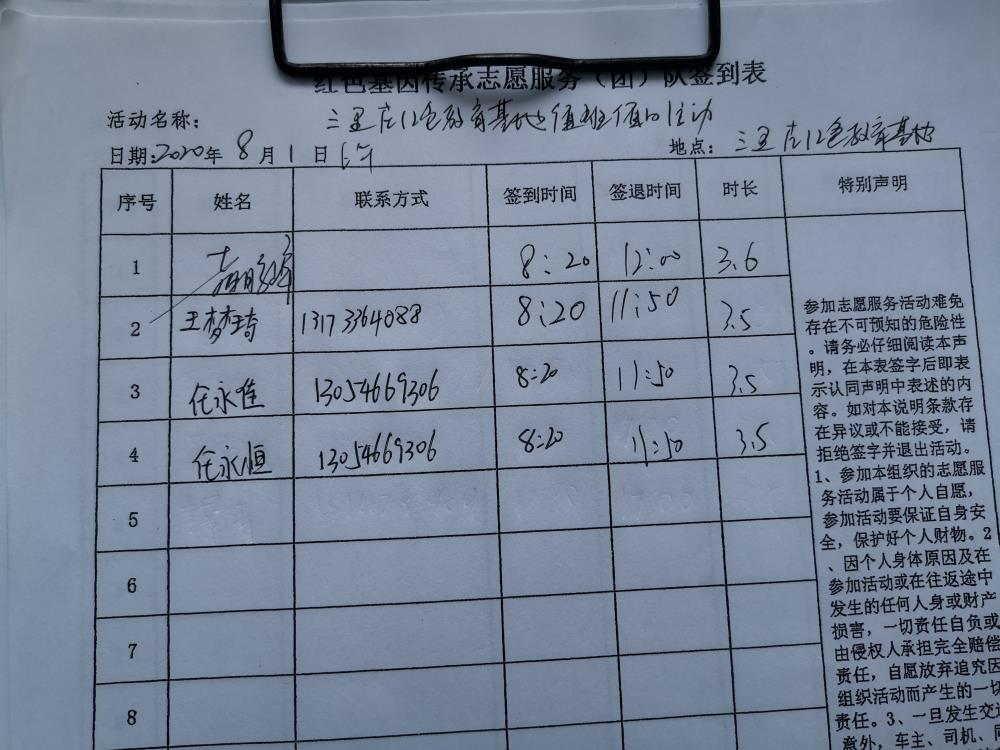 红色基因传承志愿服务（团）队签到表
活动名称： 三里庄红色教育基地值班值日活动
日期:2020年 8 月 1 日 上午 地点： 三里庄红色教育基地
序号 姓名 联系方式 签到时间 签退时间 时长 特别声明
1 8:20 12:00 3.6
2 王梦琦 13173364088 8:20 11:50 3.5
3 任永淮 13054669306 8:20 11:50 3.5
4 任永恒 13054669306 8:20 11:50 3.5
5
6
7
8
参加志愿服务活动难免
存在不可预知的危险性
。请务必仔细阅读本声
明，在本表签字后即表
示认同声明中表述的内
容。如对本说明条款存
在异议或不能接受，请
拒绝签字并退出活动。
1、参加本组织的志愿服
务活动属于个人自愿，
参加活动要保证自身安
全，保护好个人财物。2
、因个人身体原因及在
参加活动或在往返途中
发生的任何人身或财产
损害，一切责任自负或
由侵权人承担完全赔偿
责任，自愿放弃追究因
组织活动而产生的一切
责任。3、一旦发生交通
意外，车主、司机、同